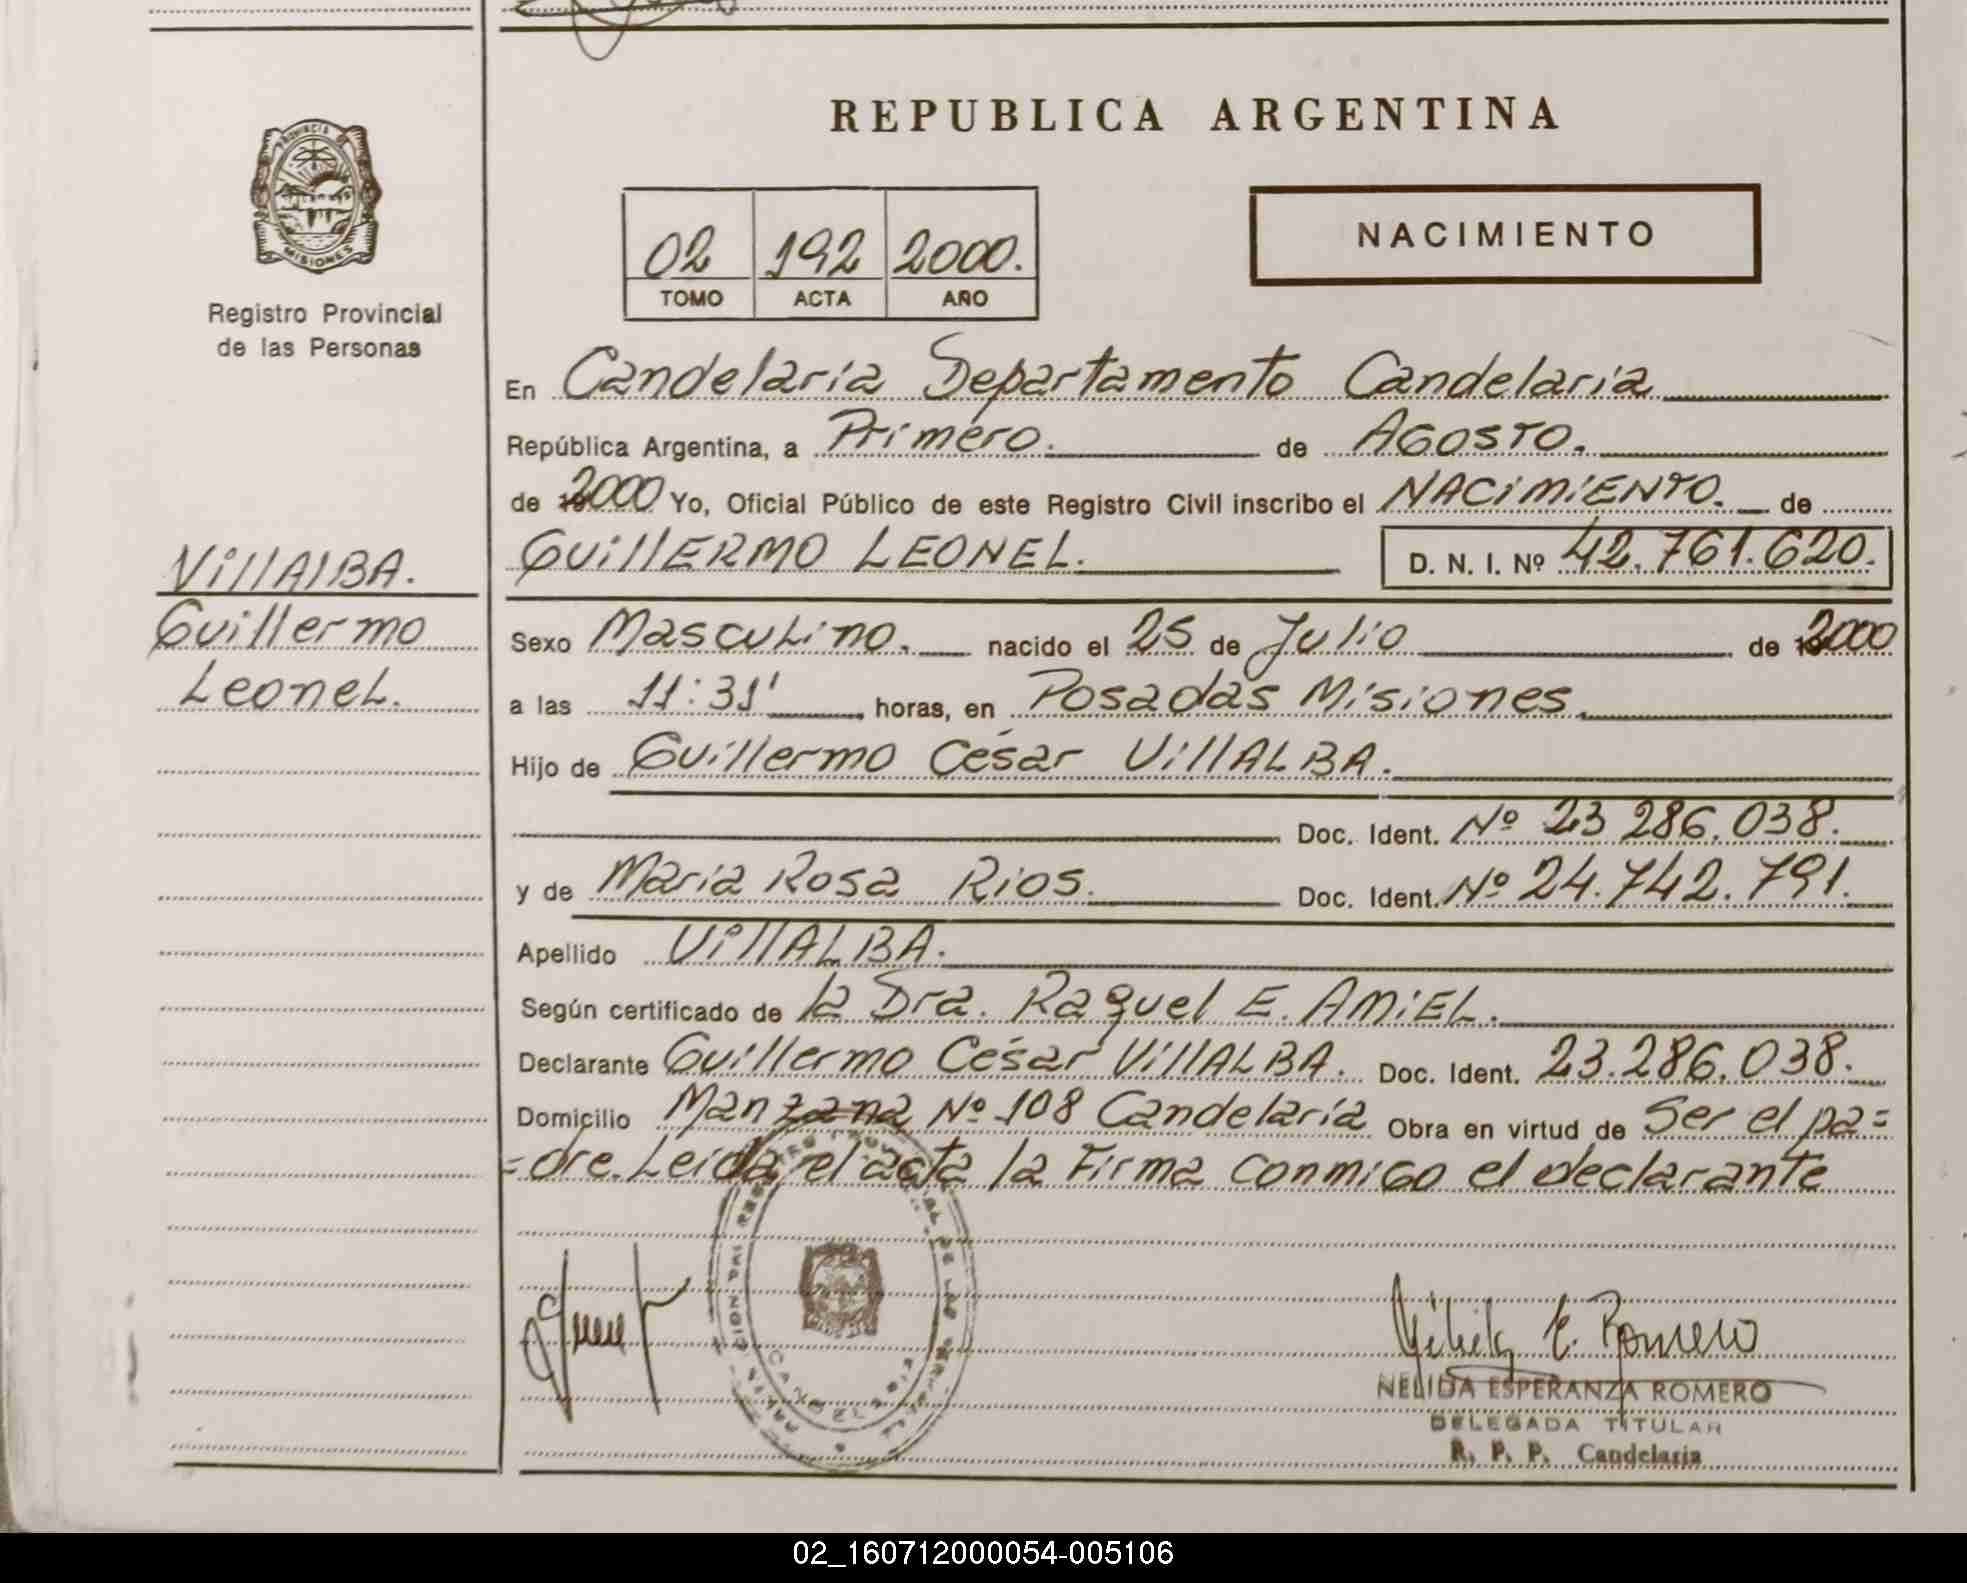 REPUBLICA ARGENTINA
PROVINCIA DE
MISIONES
Registro Provincial
de las Personas
02 192 2000.
TOMO ACTA AÑO
NACIMIENTO
En Candelaria Departamento Candelaria
República Argentina, a Primero. de AGOSTO.
de 2000 Yo, Oficial Público de este Registro Civil inscribo el NACIMIENTO. de
GUILLERMO LEONEL. D. N. I. Nº 42.761.620.
VILLALBA.
Guillermo
Leonel.
Sexo Masculino. nacido el 25 de Julio de 2000
a las 11:31' horas, en Posadas Misiones.
Hijo de Guillermo César VILLALBA.
Doc. Ident. Nº 23 286.038.
y de María Rosa Rios. Doc. Ident. Nº 24.742.791.
Apellido VILLALBA.
Según certificado de la Dra. Raquel E. AMIEL.
Declarante Guillermo César VILLALBA. Doc. Ident. 23.286.038.
Domicilio Manzana Nº 108 Candelaria Obra en virtud de Ser el pa=
=dre. Leída el acta la Firma conmigo el declarante
E. Romero
NELIDA ESPERANZA ROMERO
DELEGADA TITULAR
R. P. P. Candelaria
02_160712000054-005106